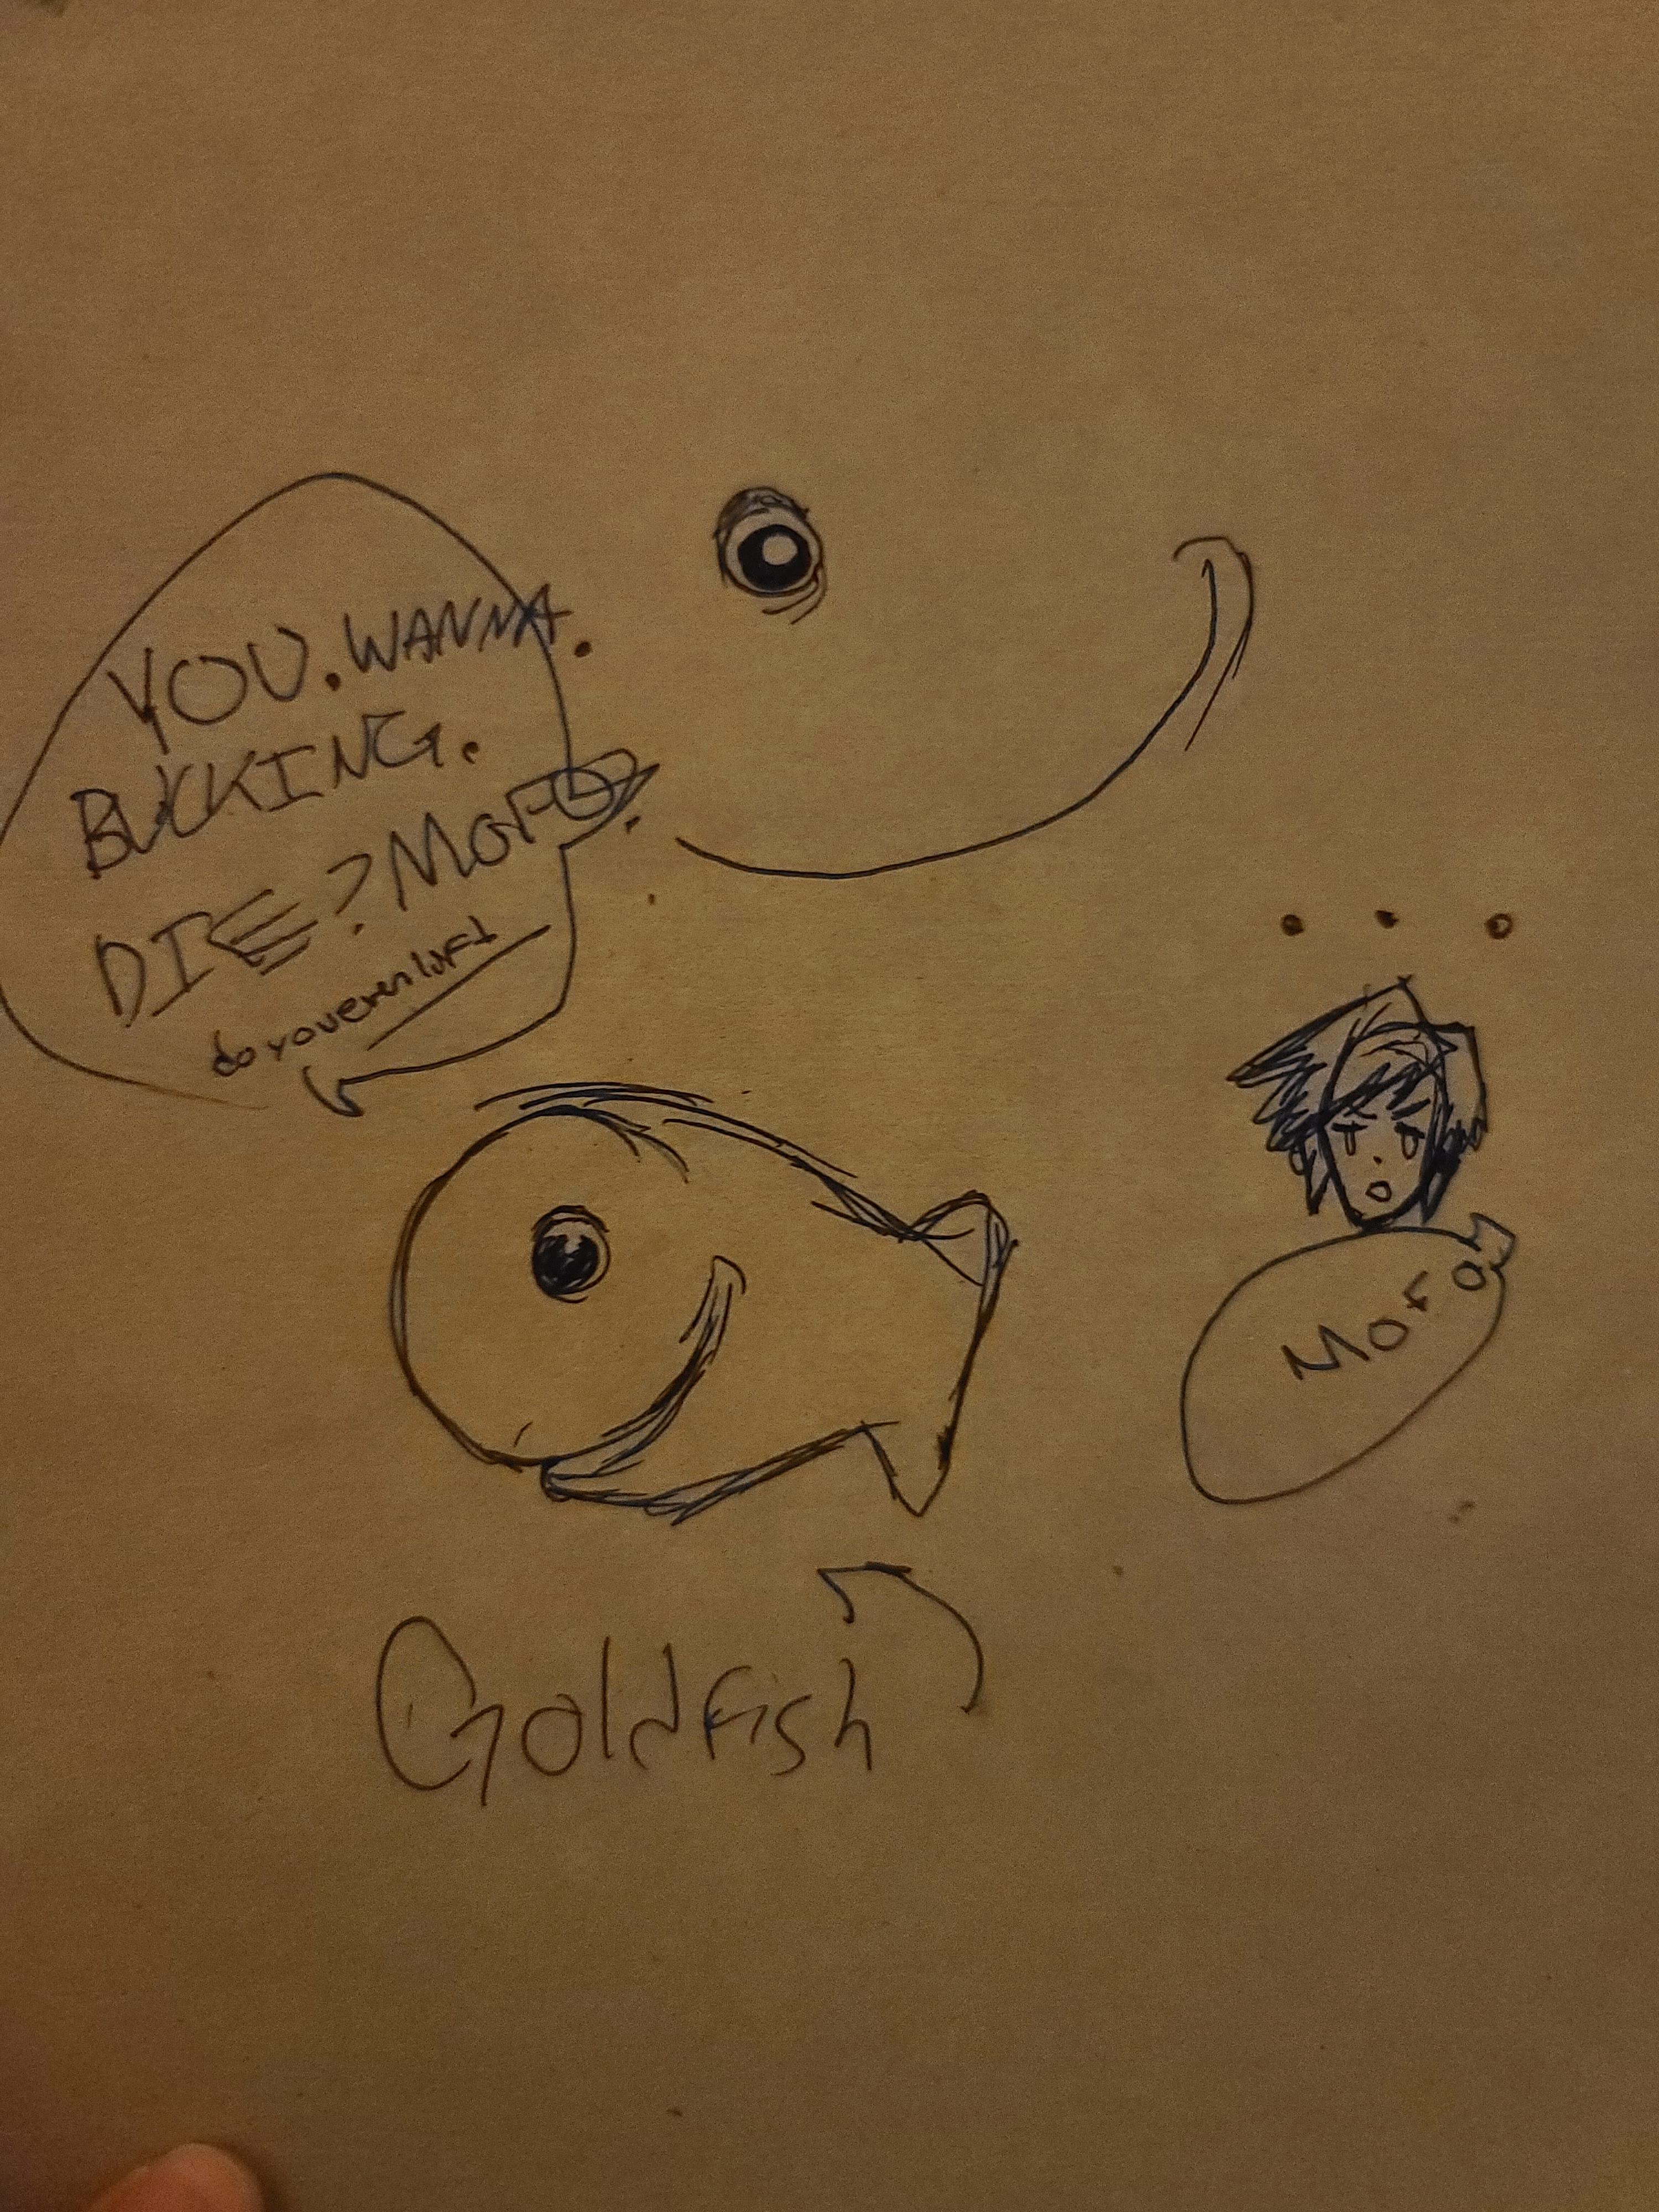 YOU. WANNA.
BUCKING.
DIE? MOFO.
do you even lift
...
Mofo
Goldfish